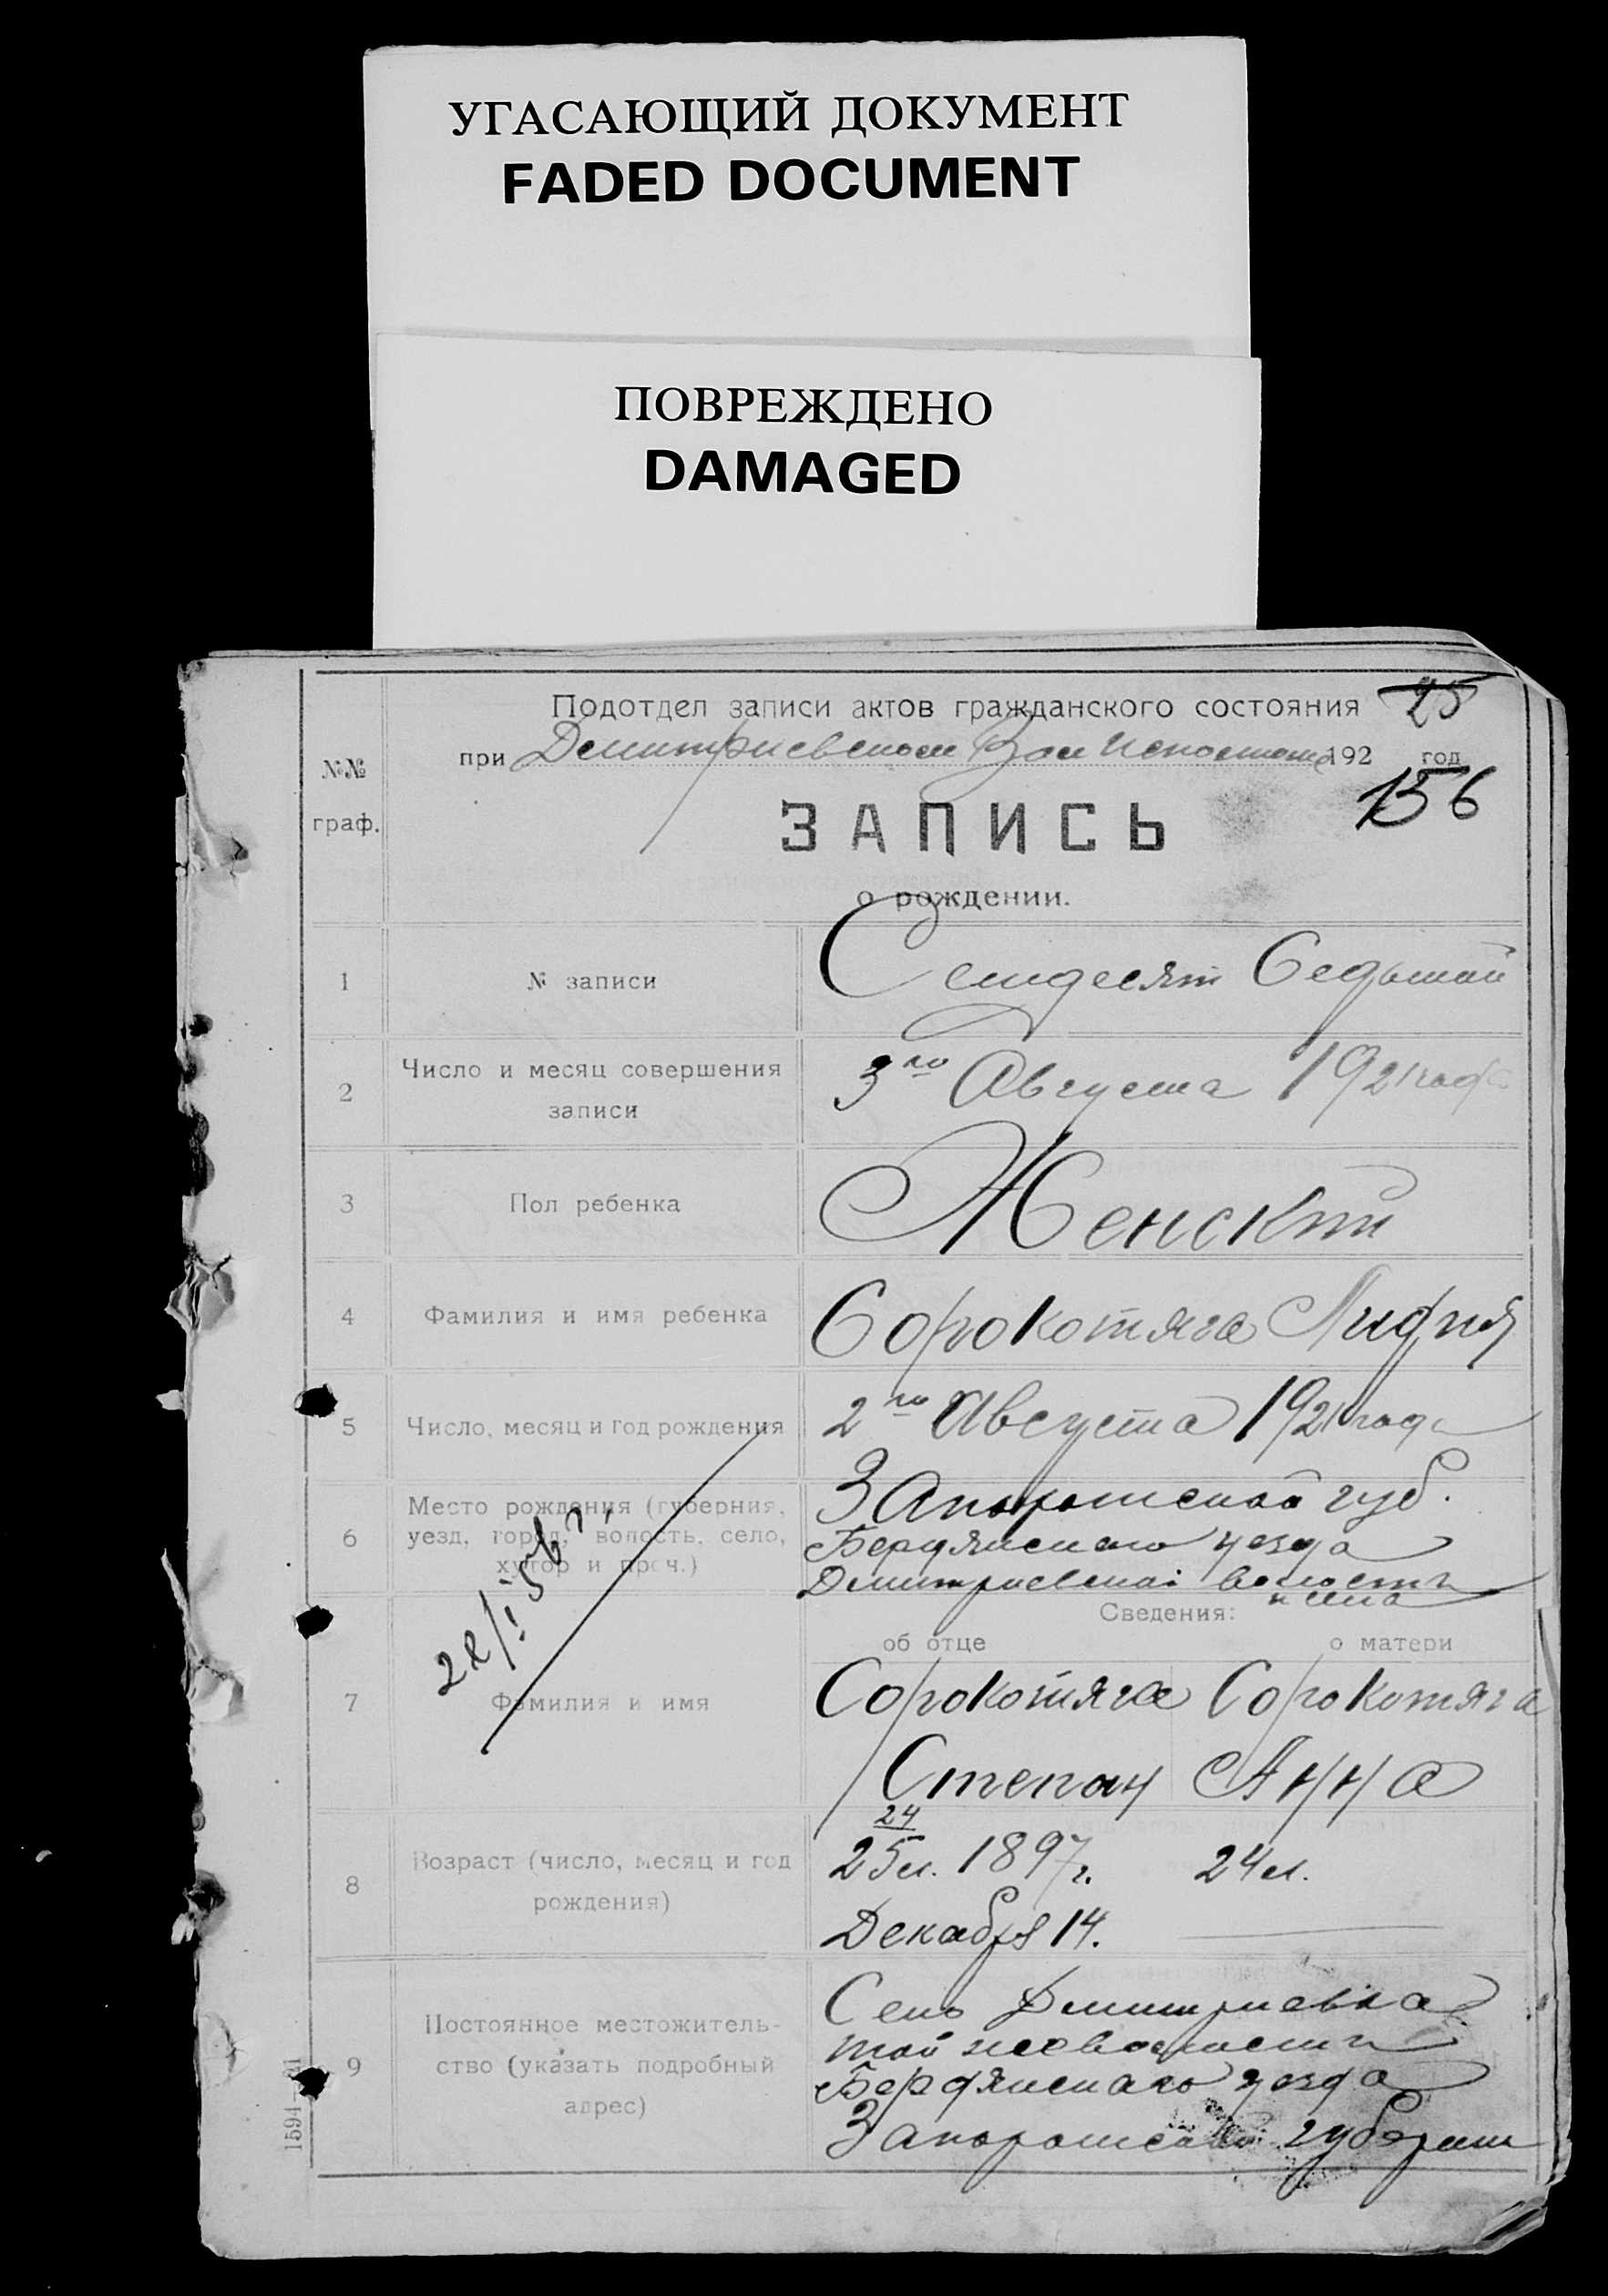 УГАСАЮЩИЙ ДОКУМЕНТ
FADED DOCUMENT
ПОВРЕЖДЕНО
DAMAGED
Подотдел записи актов гражданского состояния 25
при Дмитриевском Вол Исполкоме 192 год
№№
граф.
156
ЗАПИСЬ
о рождении.
1 № записи Семдесят Седьмой
2 Число и месяц совершения
записи
3го Августа 1921 года
3 Пол ребенка Женский
4 Фамилия и имя ребенка Сорокотяга Лидия
5 Число, месяц и год рождения 2го Августа 1921 года
6 Место рождения (губерния,
уезд, город, волость, село,
хутор и проч.)
Запорожской губ.
Бердянского уезда
Дмитриевской волости
и села
22/I-5
Сведения:
об отце о матери
7 Фамилия и имя
Сорокотяга Сорокотяга
Степан Анна
8 Возраст (число, месяц и год
рождения)
24
25 л. 1897 г. 24 л.
Декабря 14.
9 Постоянное местожитель-
ство (указать подробный
адрес)
Село Дмитриевка
той же волости
Бердянского уезда
Запорожской губернии
1594